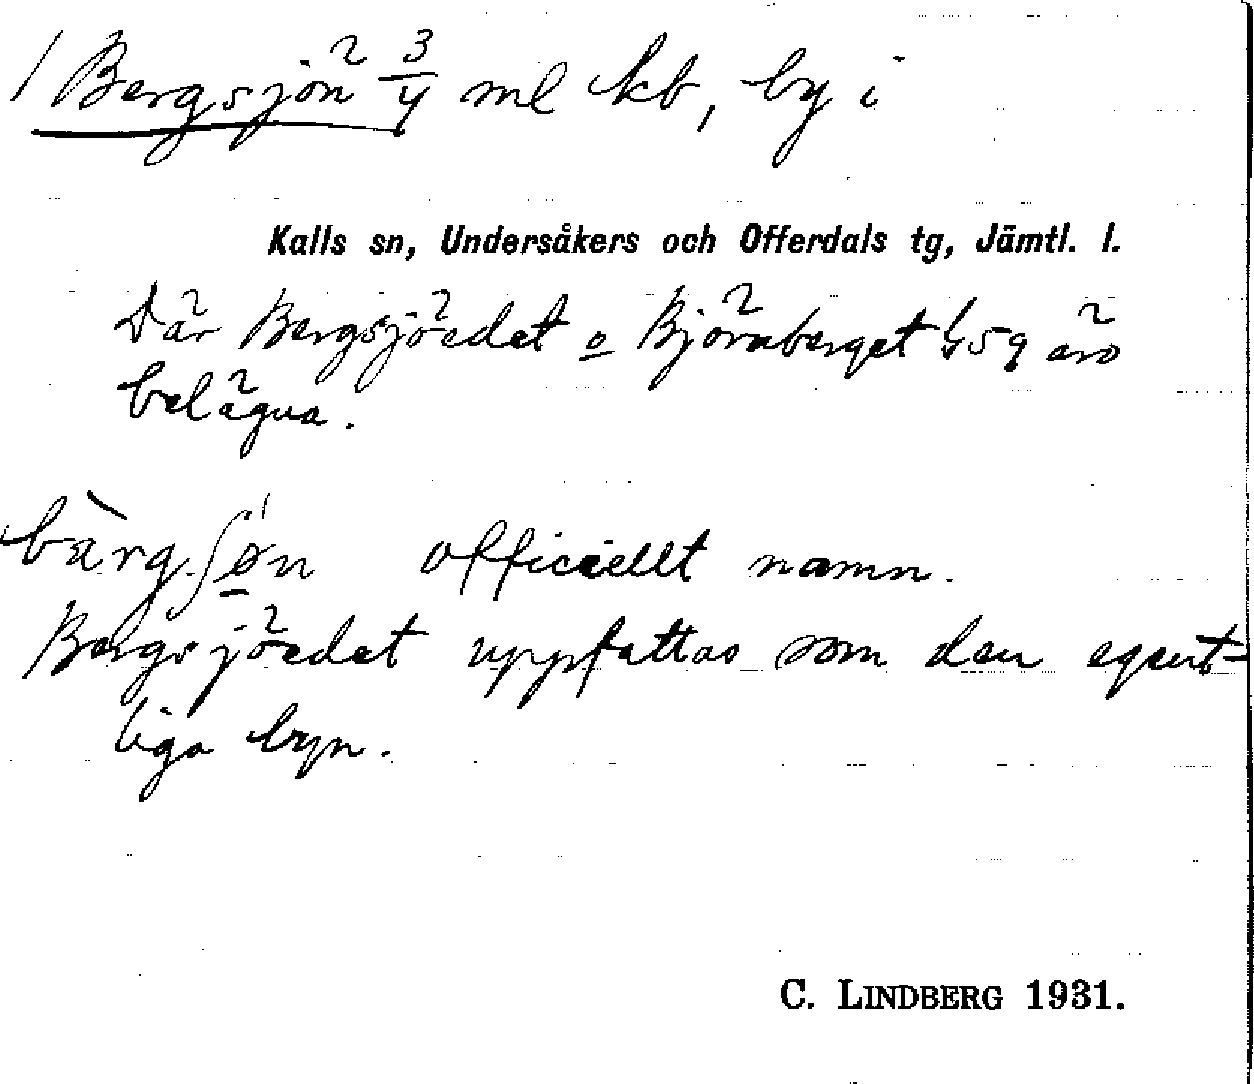 / Bergsjön 3/4 ml kb, by i
Kalls sn, Undersåkers och Offerdals tg, Jämtl. l.
Där Bergsjöedet o Björnberget 459 äro
belägna.
bàrgʃøn officiellt namn.
Bergsjöedet uppfattas som den egent-
liga byn.
C. LINDBERG 1931.